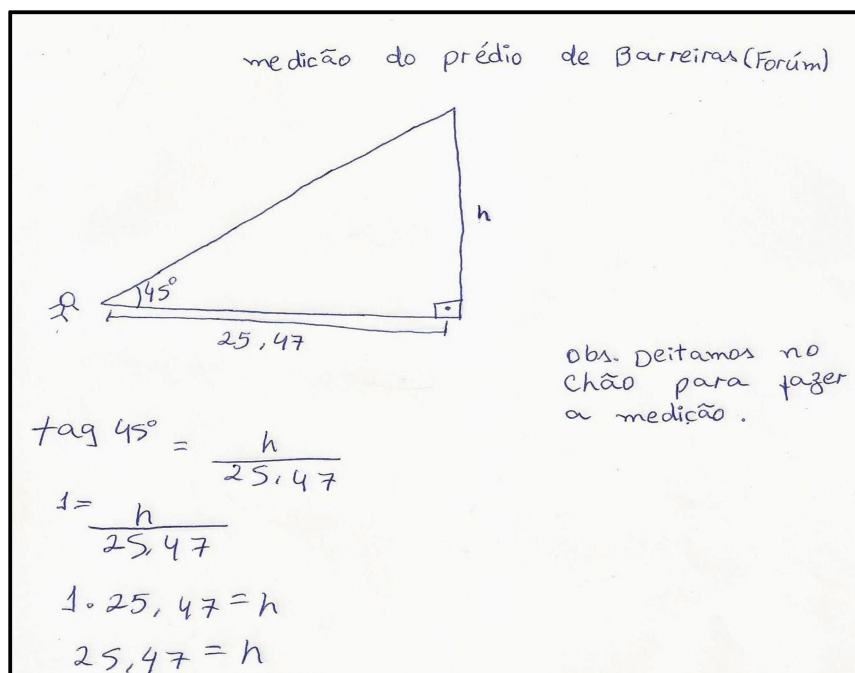 medicão do prédio de Barreiras (Forúm)
h
45°
25,47
obs. Deitamos no
Chão para fazer
a medição.
tag 45° = h
25,47
1= h
25,47
1. 25,47 = h
25,47 = h